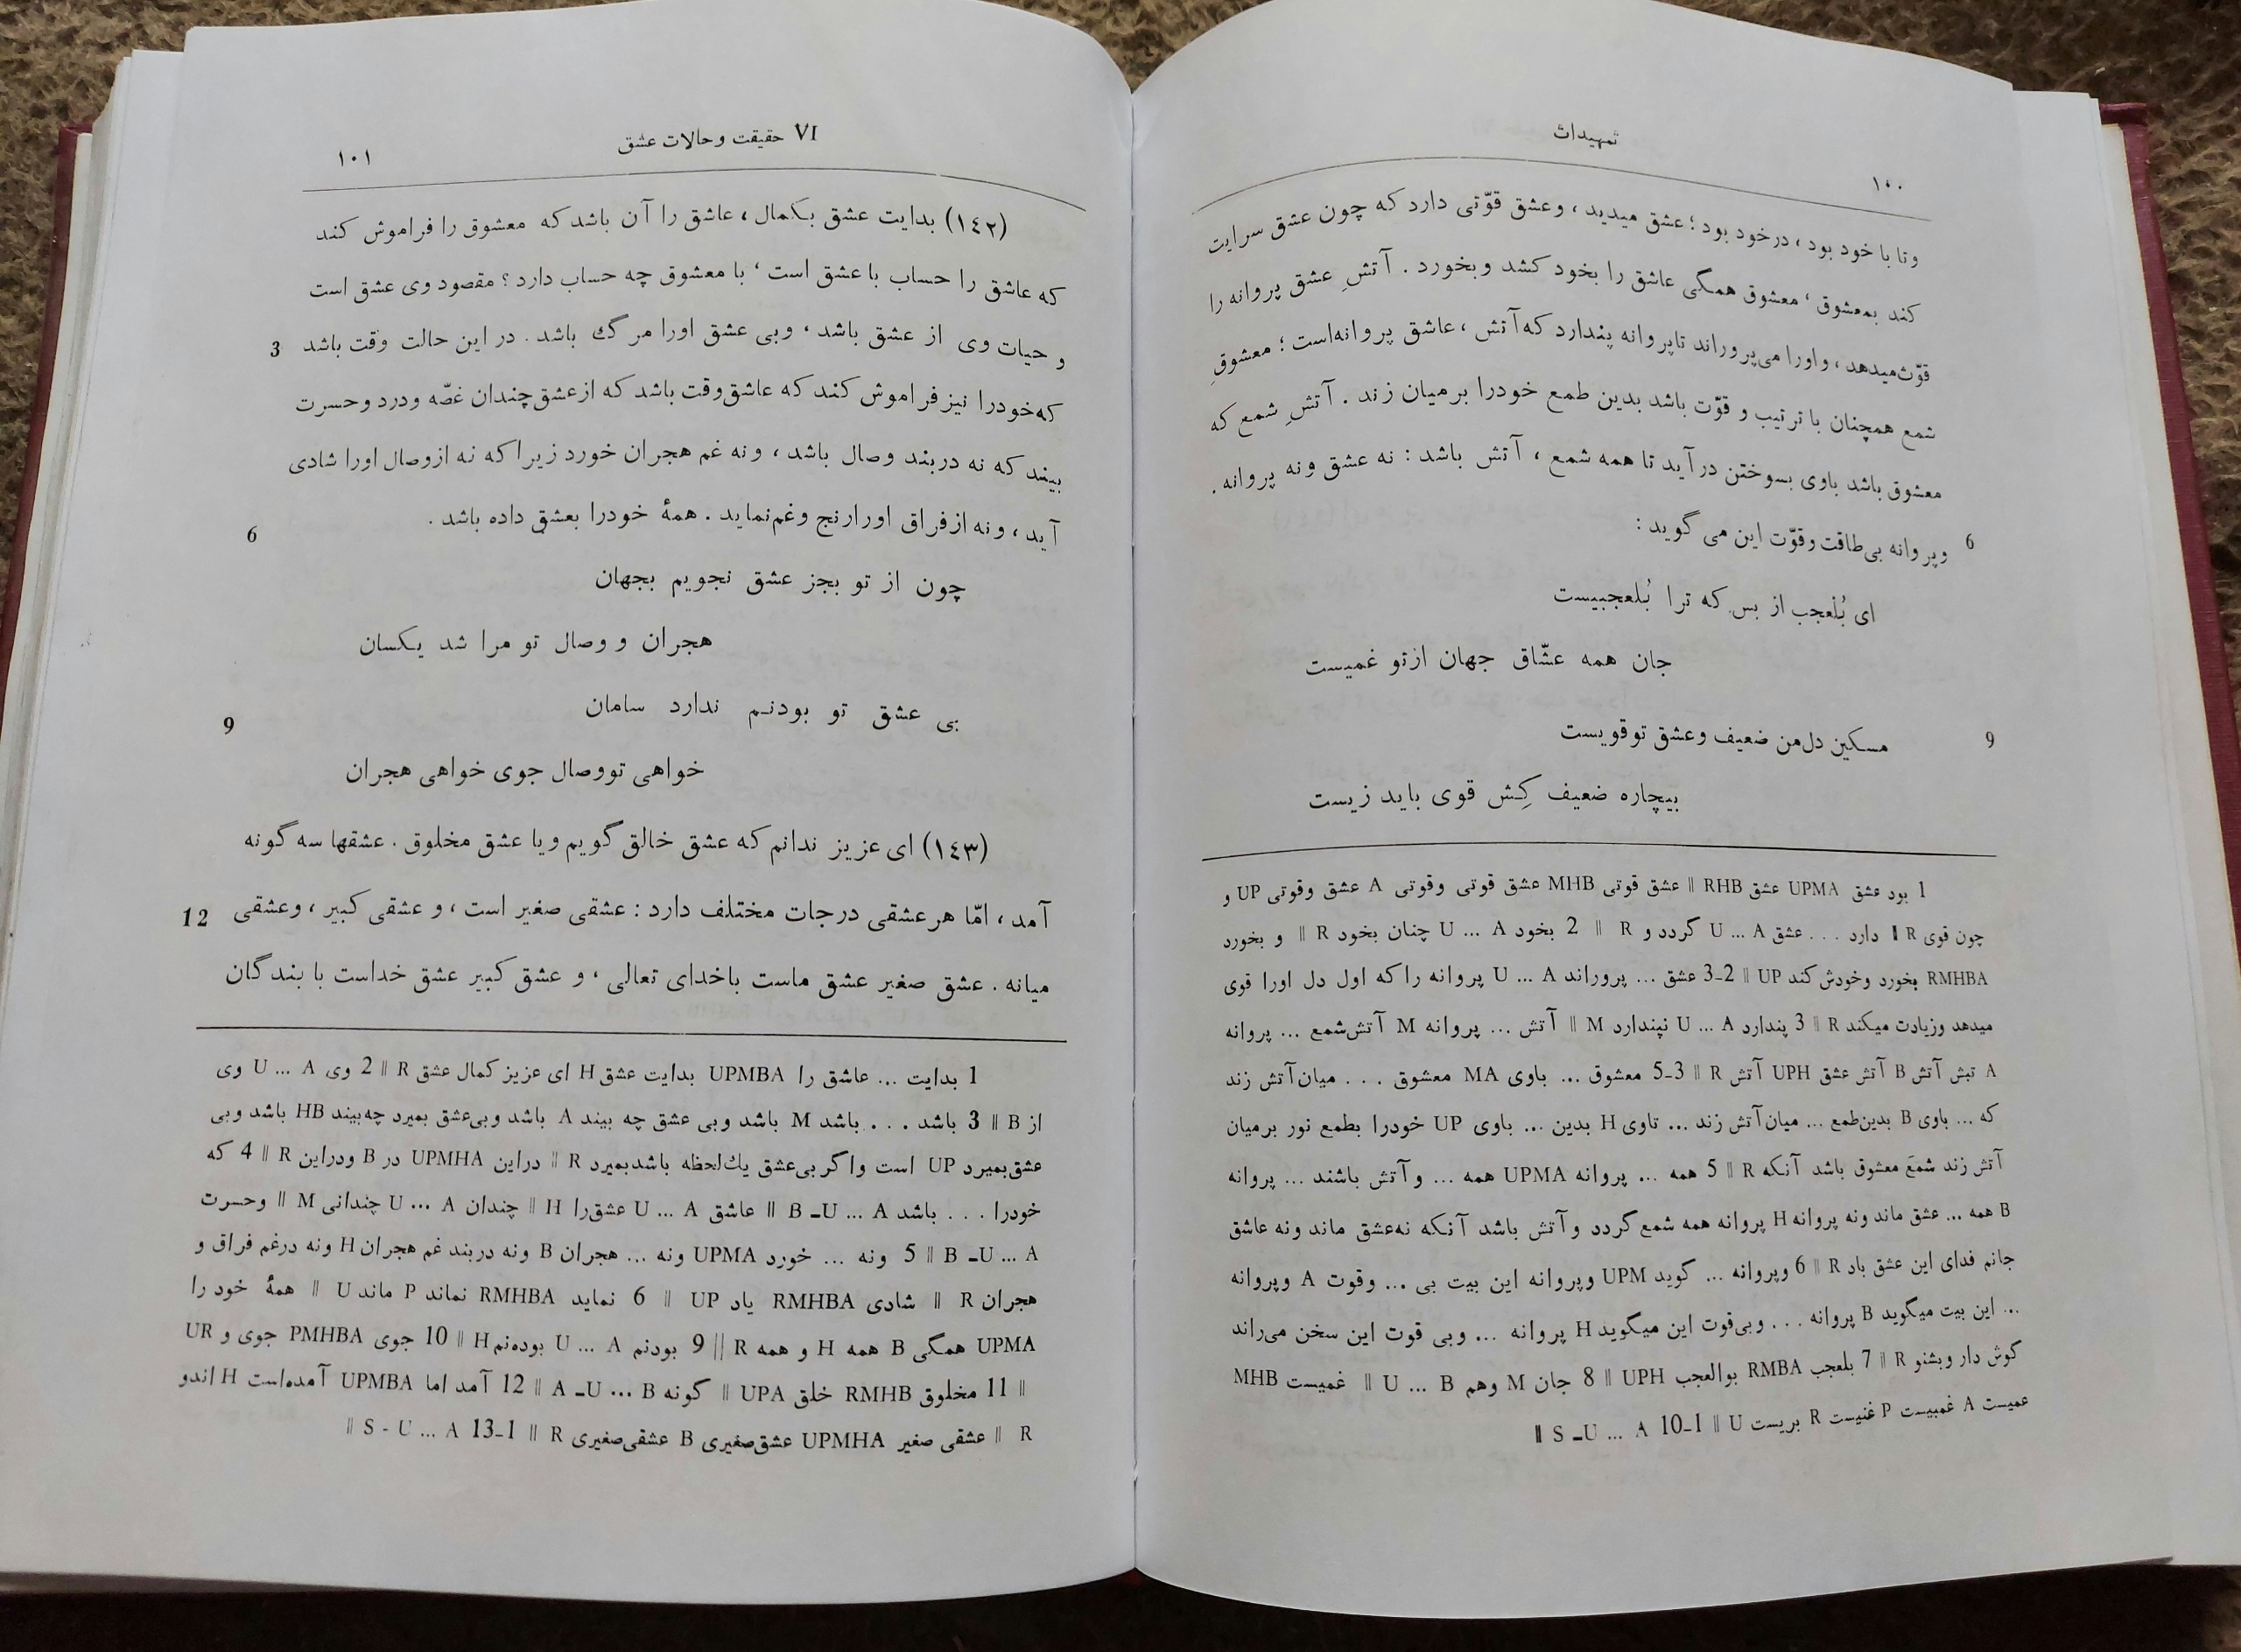 تمهیدات
١٠٠
وتا با خود بود ، درخود بود ؛ عشق میدید ، وعشق قوّتی دارد که چون عشق سرایت
کند بمعشوق ، معشوق همگی عاشق را بخود کشد وبخورد . آتشِ عشق پروانه را
قوّت میدهد ، واورا می‌پروراند تاپروانه پندارد که آتش ، عاشق پروانه‌است ؛ معشوقِ
شمع همچنان با ترتیب و قوّت باشد بدین طمع خودرا برمیان زند . آتشِ شمع که
معشوق باشد باوی بسوختن درآید تا همه شمع ، آتش باشد : نه عشق ونه پروانه .
وپروانه بی‌طاقت وقوّت این می گوید : 6
ای بُلعجب از بس که ترا بُلعجبیست
جان همه عشّاق جهان ازتو غمیست
مسکین دل‌من ضعیف وعشق توقویست 9
بیچاره ضعیف کِش قوی باید زیست
1 بود عشق UPMA عشق RHB || عشق قوتی MHB عشق قوتی وقوتی A عشق وقوتی UP و
چون قوی R || دارد . . . عشق U ... A گردد و R || 2 بخود U ... A چنان بخود R || و بخورد
RMHBA بخورد وخودش کند UP || 2-3 عشق ... پروراند U ... A پروانه راکه اول دل اورا قوی
میدهد وزیادت میکند R || 3 پندارد U ... A نپندارد M || آتش ... پروانه M آتش‌شمع ... پروانه
A تبش آتش B آتش عشق UPH آتش R || 3-5 معشوق ... باوی MA معشوق . . . میان‌آتش زند
که ... باوی B بدین‌طمع ... میان‌آتش زند ... تاوی H بدین ... باوی UP خودرا بطمع نور برمیان
آتش زند شمع معشوق باشد آنکه R || 5 همه ... پروانه UPMA همه ... وآتش باشند ... پروانه
B همه ... عشق ماند ونه پروانه H پروانه همه شمع گردد وآتش باشد آنکه نه‌عشق ماند ونه عاشق
جانم فدای این عشق باد R || 6 وپروانه ... گوید UPM وپروانه این بیت بی ... وقوت A وپروانه
... این بیت میگوید B پروانه . . . وبی‌قوت این میگوید H پروانه ... وبی قوت این سخن می‌راند
گوش دار وبشنو R || 7 بلعجب RMBA بوالعجب UPH || 8 جان M وهم U ... B || غمیست MHB
عمیست A غمبیست P غنیست R بریست U || 1-10 S -U ... A ||
VI حقیقت وحالات عشق
١٠١
(١٤٢) بدایت عشق بکمال ، عاشق را آن باشد که معشوق را فراموش کند
که عاشق را حساب با عشق است ، با معشوق چه حساب دارد ؟ مقصود وی عشق است
و حیات وی از عشق باشد ، وبی عشق اورا مرگ باشد . در این حالت وقت باشد 3
که‌خودرا نیز فراموش کند که عاشق‌وقت باشد که ازعشق چندان غصّه ودرد وحسرت
بیند که نه دربند وصال باشد ، ونه غم هجران خورد زیرا که نه ازوصال اورا شادی
آید ، ونه ازفراق اورا رنج وغم‌نماید . همهٔ خودرا بعشق داده باشد . 6
چون از تو بجز عشق نجویم بجهان
هجران و وصال تو مرا شد یکسان
بی عشق تو بودنم ندارد سامان 9
خواهی تووصال جوی خواهی هجران
(١٤٣) ای عزیز ندانم که عشق خالق گویم ویا عشق مخلوق . عشقها سه گونه
آمد ، امّا هرعشقی درجات مختلف دارد : عشقی صغیر است ، و عشقی کبیر ، وعشقی 12
میانه . عشق صغیر عشق ماست باخدای تعالی ، و عشق کبیر عشق خداست با بندگان
1 بدایت ... عاشق را UPMBA بدایت عشق H ای عزیز کمال عشق R || 2 وی U ... A وی
از B || 3 باشد . . . باشد M باشد وبی عشق چه بیند A باشد وبی‌عشق بمیرد چه‌بیند HB باشد وبی
عشق‌بمیرد UP است واگر بی‌عشق یك‌لحظه باشدبمیرد R || دراین UPMHA در B ودراین R || 4 که
خودرا . . . باشد B -U ... A || عاشق U ... A عشق‌را H || چندان U ... A چندانی M || وحسرت
B -U ... A || 5 ونه ... خورد UPMA ونه ... هجران B ونه دربند غم هجران H ونه درغم فراق و
هجران R || شادی RMHBA یاد UP || 6 نماید RMHBA نماند P ماند U || همهٔ خود را
UPMA همگی B همه H و همه R || 9 بودنم U ... A بوده‌نم H || 10 جوی PMHBA جوی و UR
|| 11 مخلوق RMHB خلق UPA || گونه A -U ... B || 12 آمد اما UPMBA آمده‌است H اندو
R || عشقی صغیر UPMHA عشق‌صغیری B عشقی‌صغیری R || 1-13 S - U ... A ||